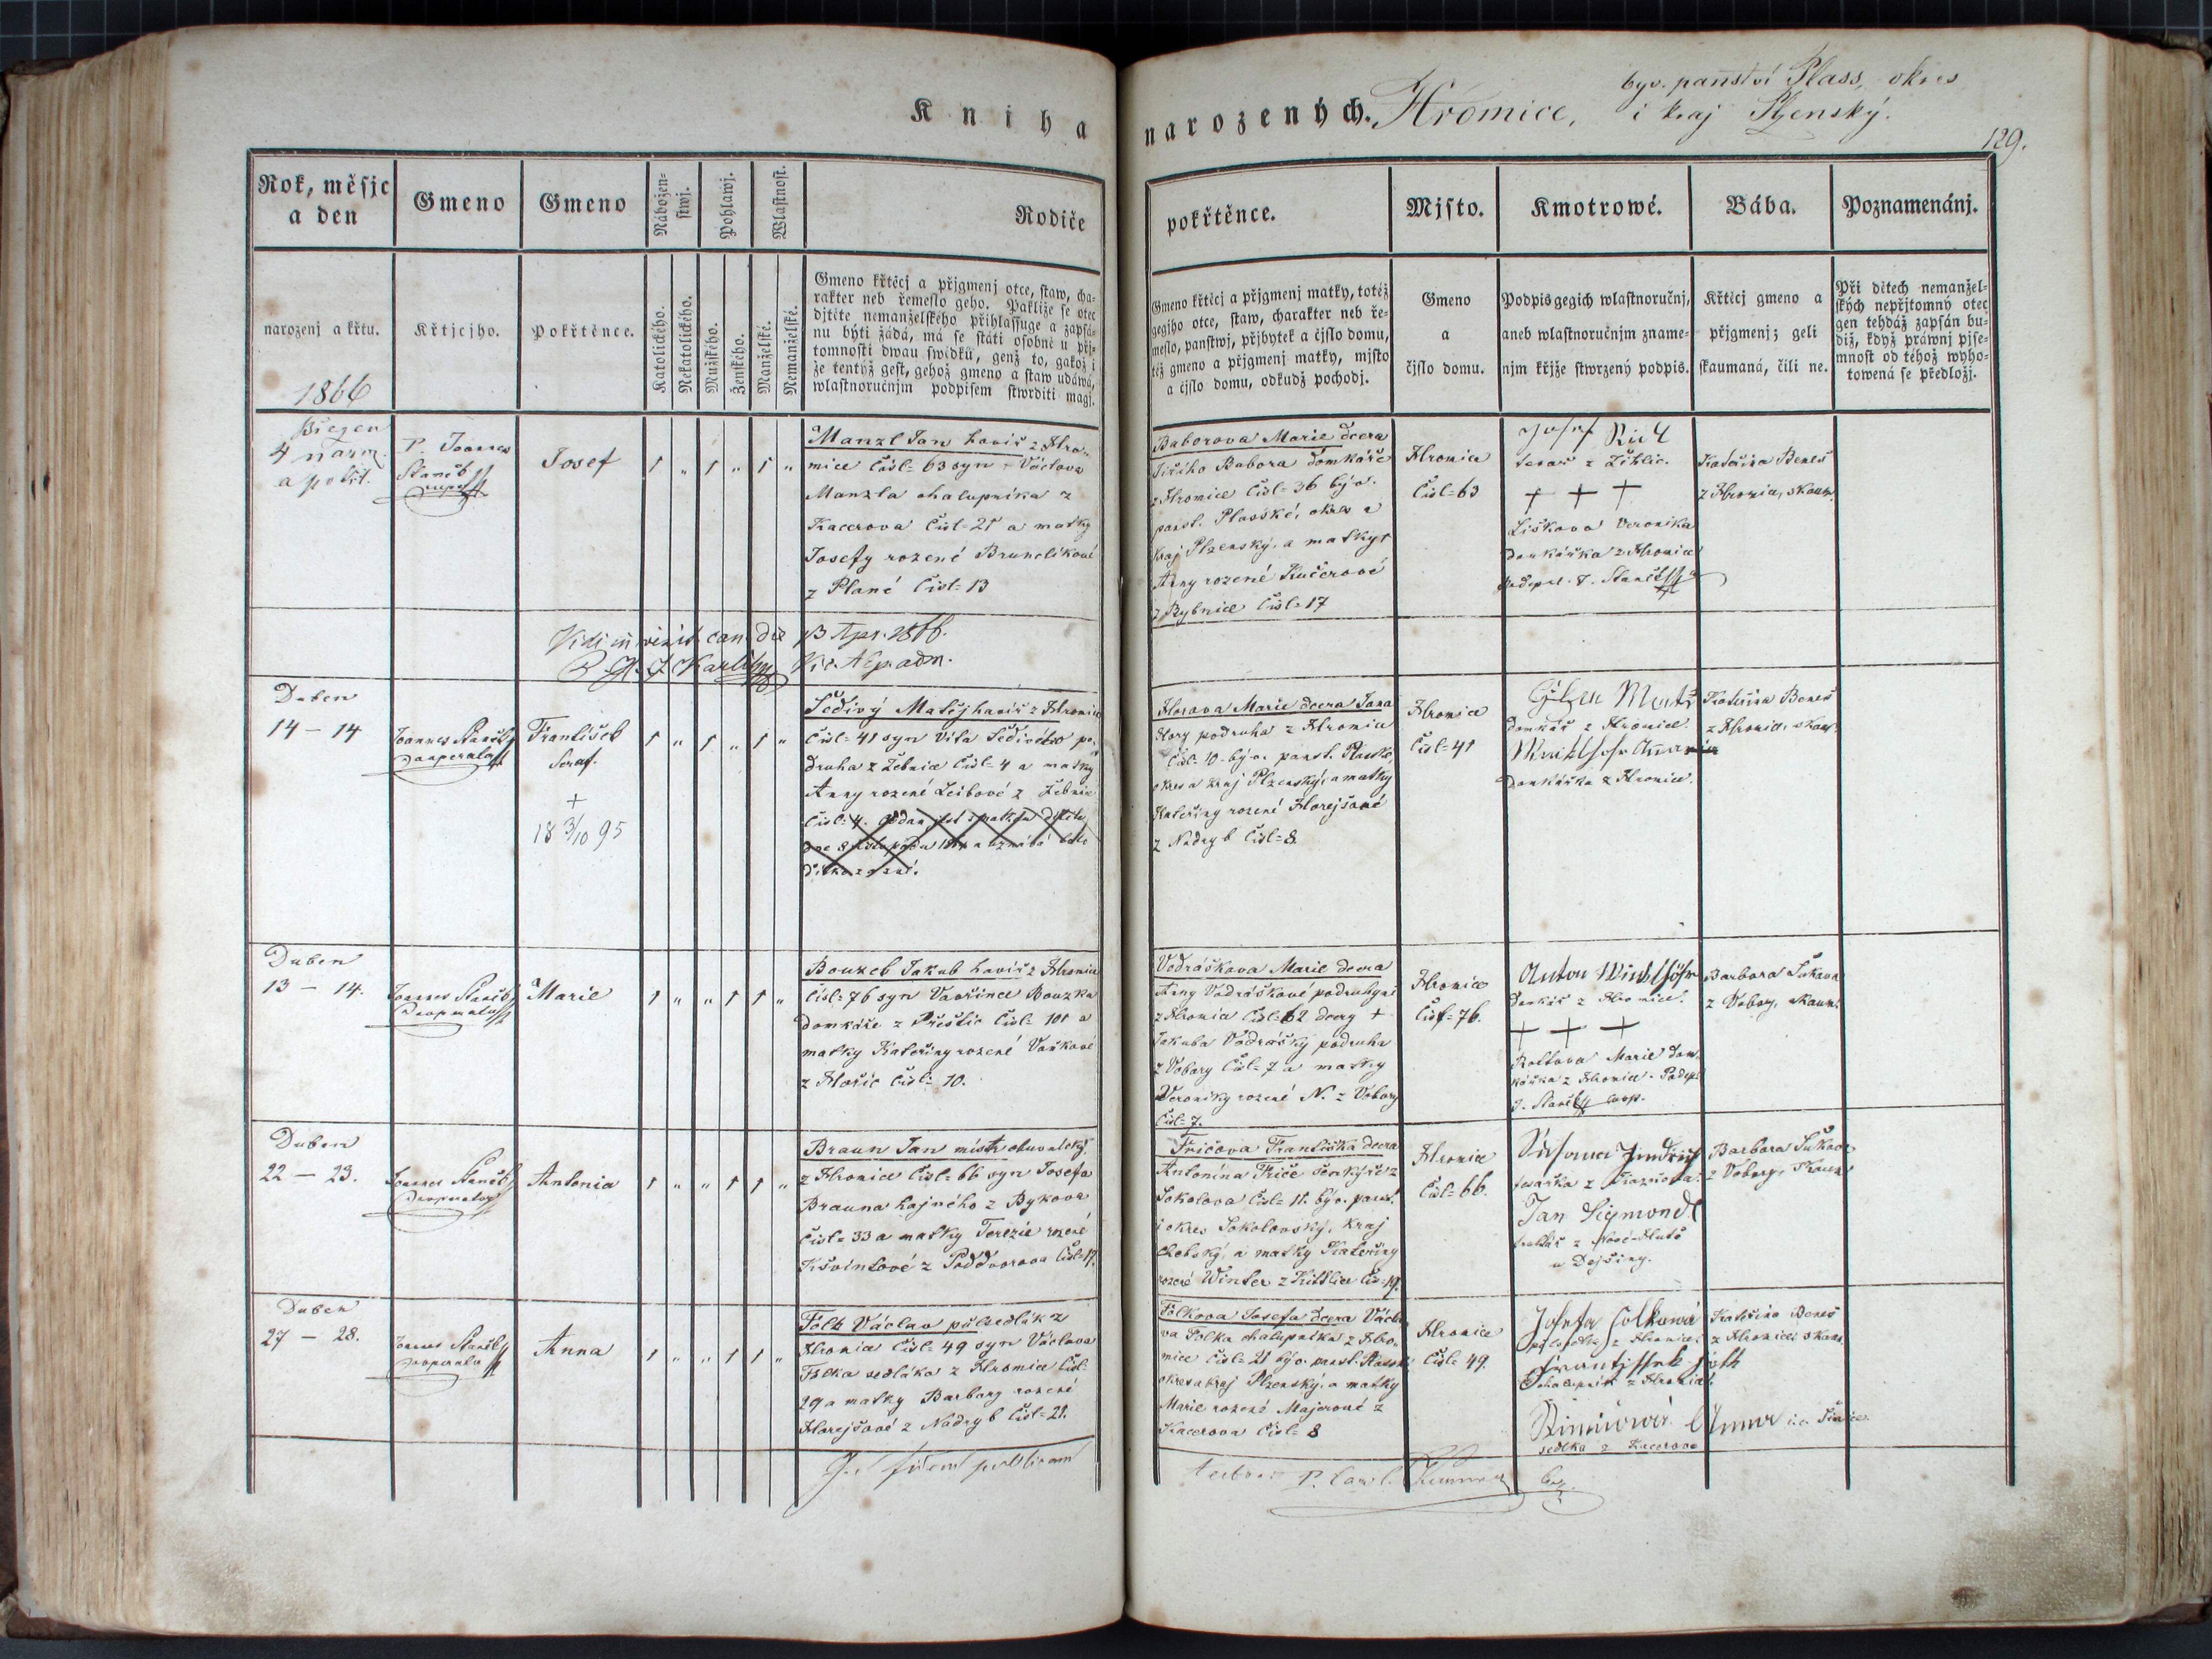 byv. panství Plass, okres
Kniha narozených. Hromice, i kraj Plzenský.
129.
Rok, měsjc a den
Gmeno
Gmeno
Nábožen-
stwj.
Pohlawj.
Wlastnost.
Rodiče
pokřtěnce.
Mjsto.
Kmotrowé.
Bába.
Poznamenánj.
narozenj a křtu.
1866
Křtjcjho.
pokřtěnce.
Katolického.
Nekatolického.
Mužského.
Ženského.
Manželské.
Nemanželské.
Gmeno křtěcj a přjgmenj otce, staw, cha-
rakter neb řemeslo geho. Pakliže se otec
djtěte nemanželského přihlassuge a zapsá-
nu býti žádá, má se státi osobně u při-
tomnosti dwau swědků, genž to, gakož i
že tentýž gest, gehož gmeno a staw udáwá,
wlastnoručnjm podpisem stwrditi magj.
Gmeno křtěcj a přjgmenj matky, totéž
gegjho otce, staw, charakter neb ře-
meslo, panstwj, přjbytek a čjslo domu,
též gmeno a přjgmenj matky, mjsto
a čjslo domu, odkudž pochodj.
Gmeno
a
čjslo domu.
Podpis gegich wlastnoručnj,
aneb wlastnoručnjm zname-
njm křjže stwrzený podpis.
Křtěcj gmeno a
přjgmenj; geli
skaumaná, čili ne.
Při dětech nemanžel-
ských nepřjtomný otec
gen tehdáž zapsán bu-
diž, když práwnj pjse-
mnost od téhož wyho-
towená se předložj.
Březen
4 nar.
a pokřt.
P. Joannes
Staněk
Josef
1 „ 1 „ 1 „
Manzl Jan havíř z Hro-
mice Čísl= 63 syn + Václava
Manzla chalupníka z
Kacerova Čísl= 21 a matky
Josefy rozené Brunclíkové
z Plané Čísl= 13
Baborova Marie dcera
Jiřího Babora domkáře
z Hromice Čísl= 36 býv.
panst. Plasské, okres a
kraj Plzenský, a matky
Anny rozené Kučerové
z Rybnice Čísl= 17
Hromice
Čísl= 63
Josef
tesař z Žihlic.
+ + +
Lišková Veronika
domkářka z Hromice
Kateřina Beneš
z Hromice, skaum.
Vidi in visit. can. die 13 Apr. 1866.
Duben
14 – 14
Joannes Staněk
Cooperator
František
Seraf.
+
18 3/10 95
1 „ 1 „ 1 „
Šedivý Matěj havíř z Hromice
Čísl= 41 syn Víta Šedivého po-
druha z Žebnice Čísl= 4 a matky
Anny rozené Leibové z Žebnice
Čísl= 4.
Horova Marie dcera Jana
Hory podruha z Hromice
Čísl= 10. býv. panst. Plasské,
okres a kraj Plzenský, a matky
Kateřiny rozené Horejšové
z Nadryb Čísl= 8
Hromice
Čísl= 41
domkář z Hromice.
domkářka z Hromice.
Kateřina Beneš
z Hromice, skaum.
Duben
13 – 14.
Joannes Staněk
Cooperator
Marie
1 „ „ 1 1 „
Bouzek Jakub havíř z Hromice
Čísl= 76 syn Vavřince Bouzka
domkáře z Přeštic Čísl= 101 a
matky Kateřiny rozené Vaňkové
z Hořic Čísl= 10.
Vodráškova Marie dcera
Anny Vodráškové podruhyně
z Hromice Čísl= 62 dcery +
Jakuba Vodrášky podruha
z Vobory Čísl= 7 a matky
Veroniky rozené N. z Vobory
Čísl= 7.
Hromice
Čísl= 76.
Anton
domkář z Hromice.
+ + +
Marie dom-
kářka z Hromice. Podeps.
J. Staněk Coop.
Barbora Sukova
z Vobory, skaum.
Duben
22 – 23.
Joannes Staněk
Cooperator
Antonia
1 „ „ 1 1 „
Braun Jan mistr obuvnický
z Hromice Čísl= 66 syn Josefa
Brauna hajného z Bykova
Čísl= 33 a matky Terezie rozené
z Poddvorova Čísl= 17.
Fričova Františka dcera
Antonína Friče
Sokolova Čísl= 11. býv. panst.
i okres Sokolovský, kraj
Chebský, a matky Kateřiny
rozené Winter z Kittlice Čís= 19.
Hromice
Čísl= 66.
Jan Sigmondt
z Nové Hutě
u Dejšiny.
Barbora Sukova
z Vobory, skaum.
Duben
27 – 28.
Joannes Staněk
Cooperator
Anna
1 „ „ 1 1 „
Folk Václav půlsedlák z
Hromice Čísl= 49 syn Václava
Folka sedláka z Hromice Čísl=
29 a matky Barbory rozené
Horejšové z Nadryb Čísl= 21.
Folkova Josefa dcera Václa-
va Folka chalupníka z Hro-
mice Čísl= 21 býv. panst. Plassk.
okres a kraj Plzenský, a matky
Marie rozené Majerové z
Kacerova Čísl= 8
Hromice
Čísl= 49.
Josefa Folkowá
půlsedlka z Hromice
Frantissek Folk
chalupník z Hromice
Anna
sedlka z Kacerova
Kateřina Beneš
z Hromice, skaum.